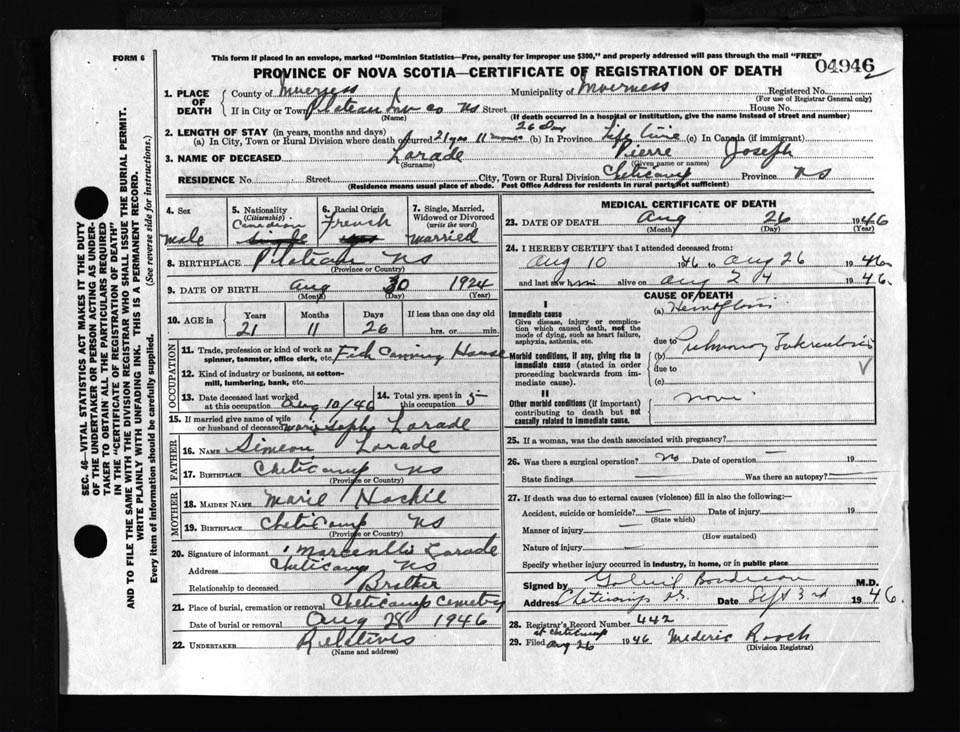 FORM 6
This form if placed in an envelope, marked "Dominion Statistics—Free, penalty for improper use $300," and properly addressed will pass through the mail "FREE"
PROVINCE OF NOVA SCOTIA—CERTIFICATE OF REGISTRATION OF DEATH
04946
1. PLACE OF DEATH
County of Inverness
Municipality of Inverness
Registered No.
(For use of Registrar General only)
If in City or Town Plateau Inv co NS Street
House No.
(Name)
(If death occurred in a hospital or institution, give the name instead of street and number)
2. LENGTH OF STAY (in years, months and days)
26 Day
(a) In City, Town or Rural Division where death occurred 21 yrs 11 (b) In Province Life time (c) In Canada (if immigrant)
3. NAME OF DECEASED Larade Pierre Joseph
(Surname) (Given name or names)
RESIDENCE No. Street City, Town or Rural Division Cheticamp Province NS
(Residence means usual place of abode. Post Office Address for residents in rural parts not sufficient)
4. Sex
male
5. Nationality (Citizenship)
Canadian
single
6. Racial Origin
French
7. Single, Married, Widowed or Divorced (write the word)
married
8. BIRTHPLACE Plateau NS
(Province or Country)
9. DATE OF BIRTH Aug 30 1924
(Month) (Day) (Year)
10. AGE in
Years Months Days If less than one day old
21 11 26 hrs. or min.
OCCUPATION
11. Trade, profession or kind of work as spinner, teamster, office clerk, etc. Fish Canning House
12. Kind of industry or business, as cotton-mill, lumbering, bank, etc.
13. Date deceased last worked at this occupation Aug 10/46
14. Total yrs. spent in this occupation 5
15. If married give name of wife or husband of deceased Larade
FATHER
16. NAME Simeon Larade
17. BIRTHPLACE Cheticamp NS
(Province or Country)
MOTHER
18. MAIDEN NAME Marie
19. BIRTHPLACE Cheticamp NS
(Province or Country)
20. Signature of informant Larade
Address Cheticamp NS
Relationship to deceased Brother
21. Place of burial, cremation or removal Cheticamp Cemetery
Date of burial or removal Aug 28 1946
22. UNDERTAKER Relatives
(Name and address)
MEDICAL CERTIFICATE OF DEATH
23. DATE OF DEATH Aug 26 1946
(Month) (Day) (Year)
24. I HEREBY CERTIFY that I attended deceased from:
Aug 10 1946 to Aug 26 1946
and last saw him alive on Aug 24 1946.
CAUSE OF DEATH
I
Immediate cause
Give disease, injury or complication which caused death, not the mode of dying, such as heart failure, asphyxia, asthenia, etc.
(a) Hemoptysis
due to Pulmonary Tuberculosis
Morbid conditions, if any, giving rise to immediate cause (stated in order proceeding backwards from immediate cause).
(b)
due to
(c)
II
Other morbid conditions (if important) contributing to death but not causally related to immediate cause.
none
25. If a woman, was the death associated with pregnancy?
26. Was there a surgical operation? No Date of operation — 19
State findings Was there an autopsy?
27. If death was due to external causes (violence) fill in also the following:—
Accident, suicide or homicide? — Date of injury 19
(State which)
Manner of injury —
(How sustained)
Nature of injury —
Specify whether injury occurred in industry, in home, or in public place
Signed by M.D.
Address Cheticamp N.S. Date Sept 3rd 1946.
28. Registrar's Record Number 442
at Cheticamp
29. Filed Aug 26 1946 Mederic Roach
(Division Registrar)
SEC. 46—VITAL STATISTICS ACT MAKES IT THE DUTY
OF THE UNDERTAKER OR PERSON ACTING AS UNDER-
TAKER TO OBTAIN ALL THE PARTICULARS REQUIRED
IN THE "CERTIFICATE OF REGISTRATION OF DEATH"
AND TO FILE THE SAME WITH THE DIVISION REGISTRAR WHO SHALL ISSUE THE BURIAL PERMIT.
WRITE PLAINLY WITH UNFADING INK. THIS IS A PERMANENT RECORD.
Every item of information should be carefully supplied. (See reverse side for instructions.)